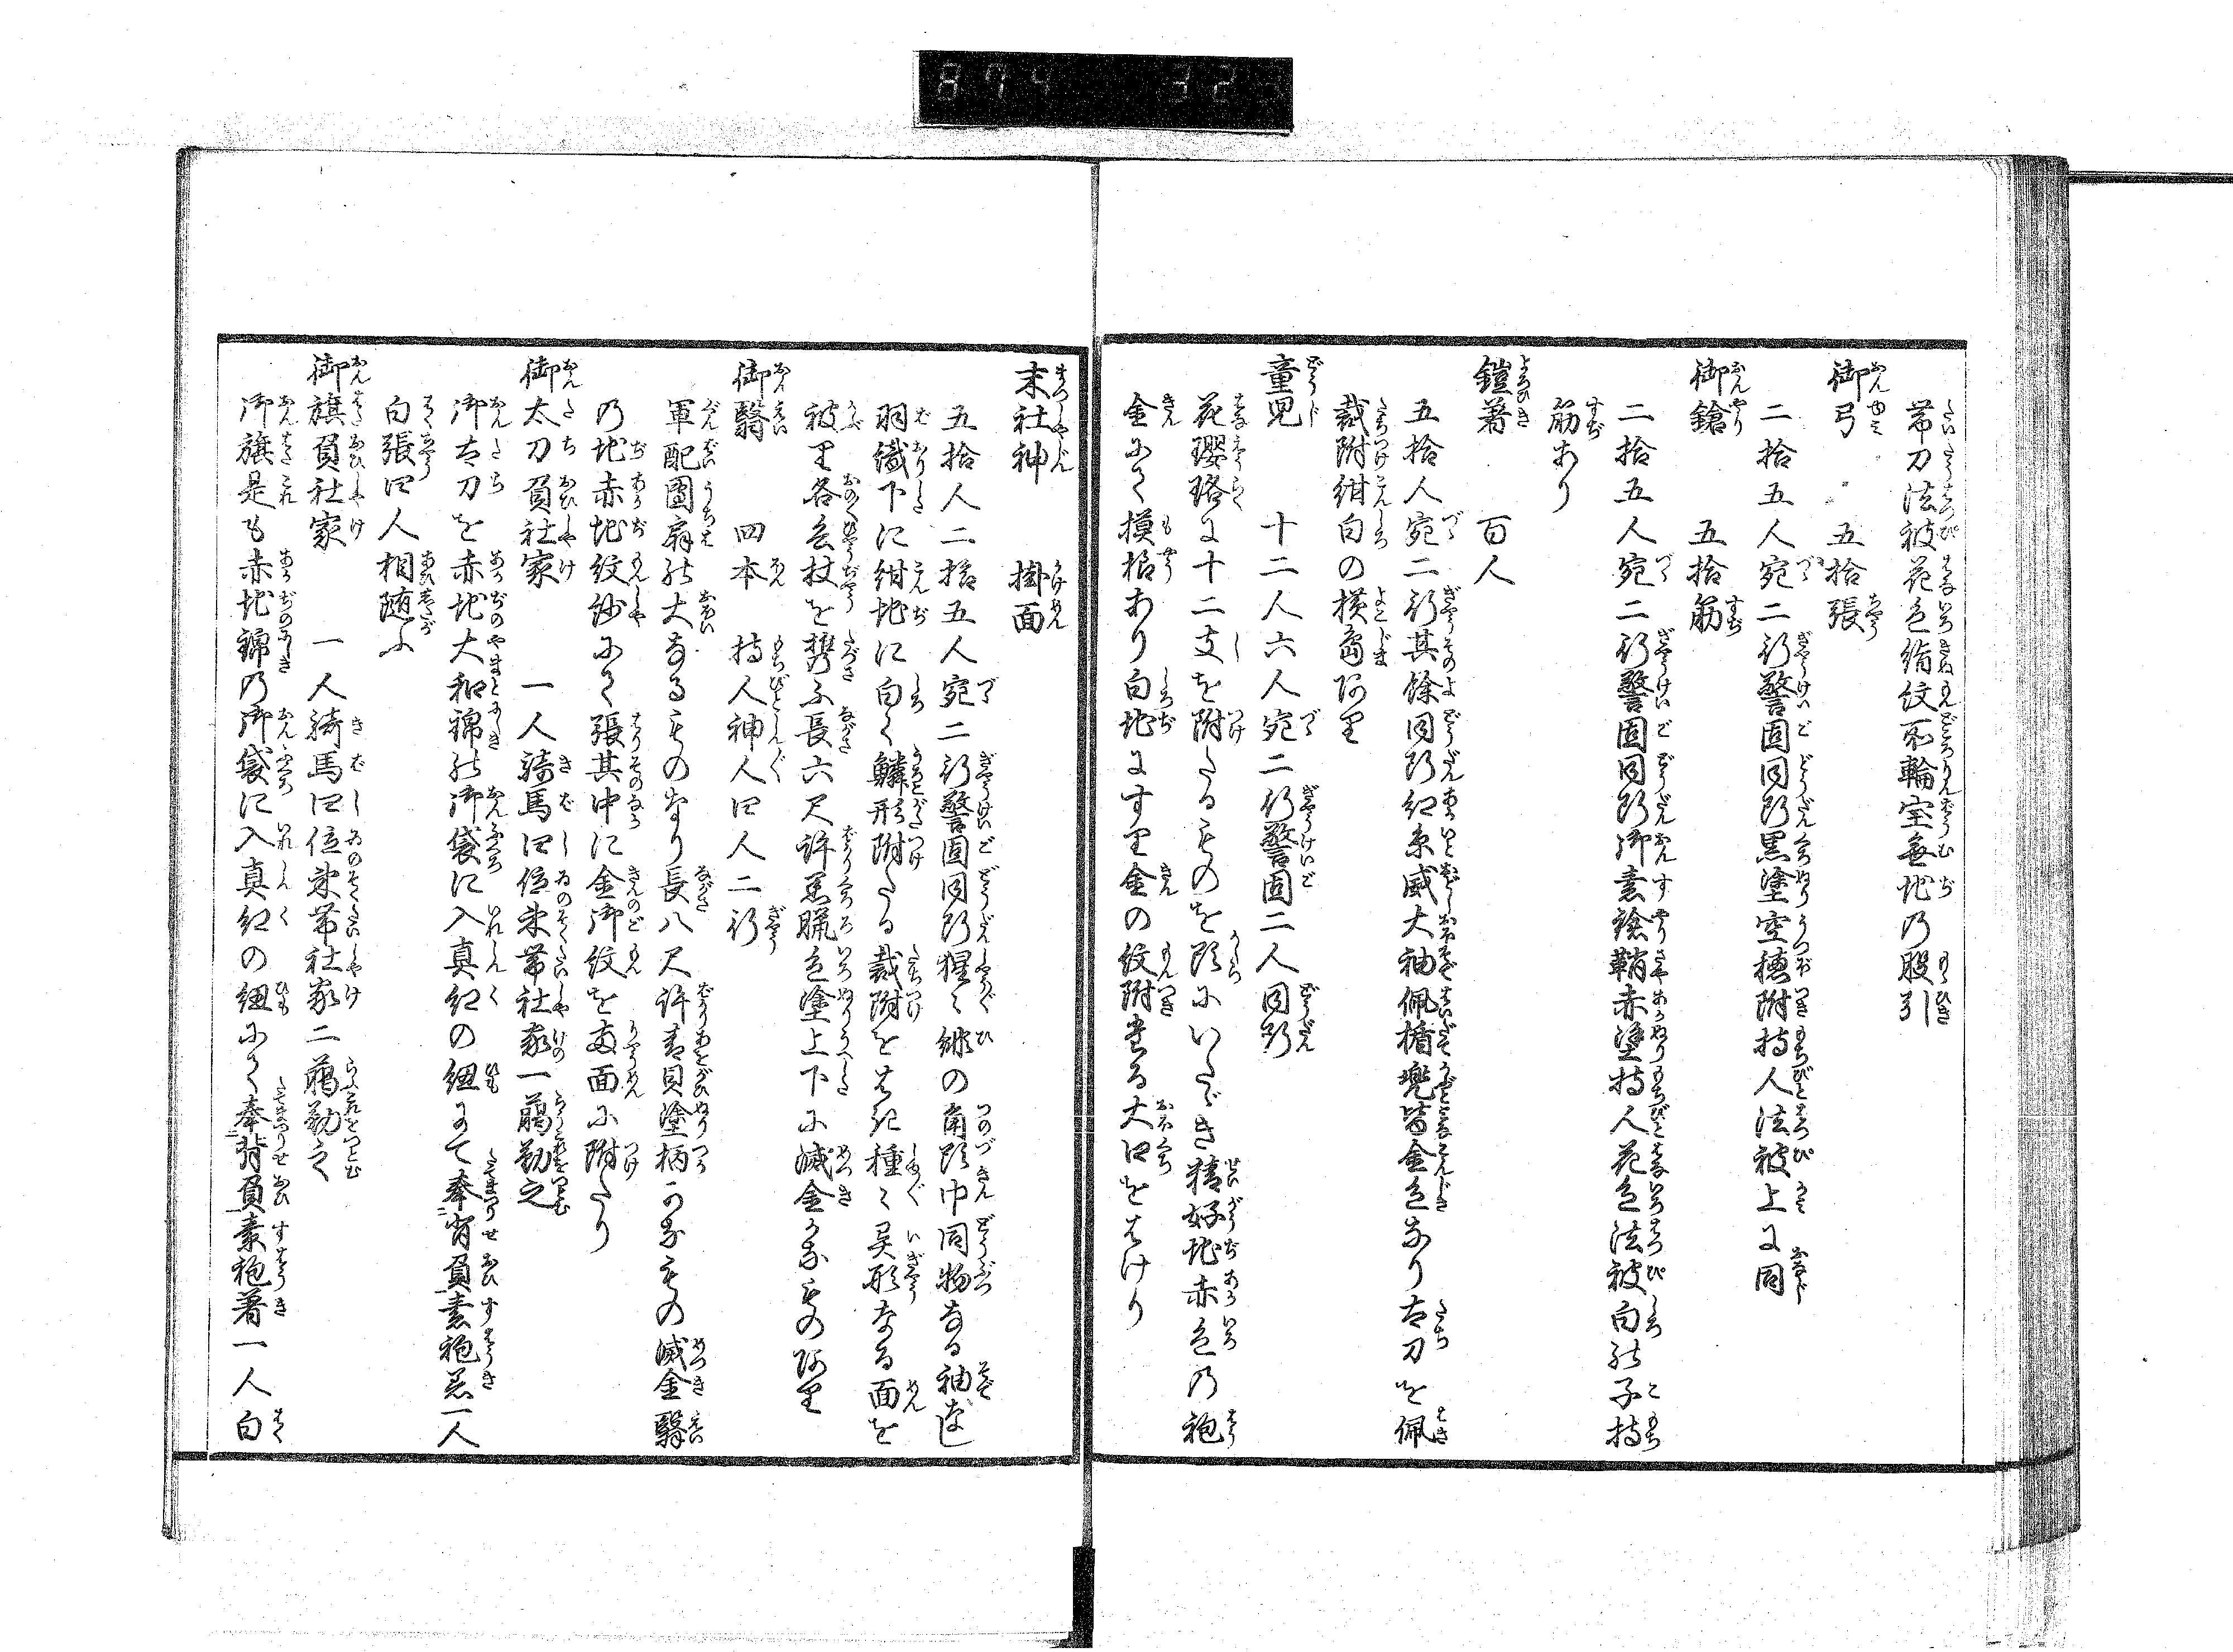 帯刀法被花色絹紋所輪宝無地乃股引
御弓　五拾張
二拾五人宛二行警固同断黒塗空穂附持人法被上に同
御鎗　五拾筋
二拾五人宛二行警固同断御素鎗鞘赤塗持人花色法被白の子持
筋あり
鎧著　百人
五拾人宛二行其余同断紅糸威大袖佩楯兜皆金色なり太刀を佩
裁附紺白の横島あり
童児　十二人六人宛二行警固二人同断
花瓔珞に十二支を附たるものを頭にいたゞき精好地赤色乃袍
金にて摸様あり白地にすり金の紋附たる大口をはけり
末社神　掛面
五拾人二拾五人宛二行警固同断猩々緋の角頭巾同物なる袖なし
羽織下に紺地に白く鱗形附たる裁附をはき種々異形なる面を
被り各杖を携ふ長六尺許黒臘色塗上下に滅金かなものあり
御翳　四本　持人神人四人二行
軍配団扇の大なるものなり長八尺許青貝塗柄かなもの滅金翳
乃地赤地紋紗にて張其中に金御紋を両面に附たり
御太刀負社家　一人騎馬四位束帯社家一臈勤之
御太刀を赤地大和錦の御袋に入真紅の紐にて奉背負素袍著一人
白張四人相随ふ
御旗負社家　一人騎馬四位束帯社家二臈勤之
御旗是も赤地錦の御袋に入真紅の紐にて奉背負素袍著一人白
874 32